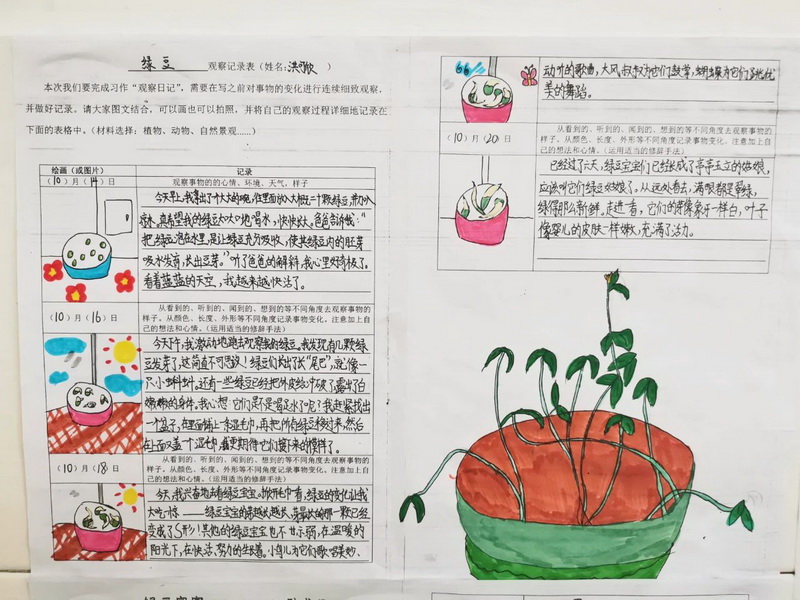 绿豆 观察记录表（姓名：洪可欣 ）
本次我们要完成习作“观察日记”，需要在写之前对事物的变化进行连续细致观察，
并做好记录。请大家图文结合，可以画也可以拍照，并将自己的观察过程详细地记录在
下面的表格中。（材料选择：植物、动物、自然景观……）
绘画（或图片） 记录
（10）月（14）日 观察事物的的心情、环境、天气，样子
今天早上，我拿出了个大大的碗，往里面放入大概三十颗绿豆，并加入
凉水，真希望我的绿豆大口大口地喝水，快快长大。爸爸告诉我：“
把绿豆泡在水里，是让绿豆充分吸收，使其绿豆内的胚芽
吸水发育，长出豆芽。”听了爸爸的解释，我心里好奇极了。
看着蓝蓝的天空，我越来越快活了。
（10）月（16）日
从看到的、听到的、闻到的、想到的等不同角度去观察事物的
样子。从颜色、长度、外形等不同角度记录事物变化，注意加上自
己的想法和心情。（运用适当的修辞手法）
今天下午，我激动地跑去观察我的绿豆。我发现有几颗绿
豆发芽了，这简直不可思议！绿豆们长出了长“尾巴”，就像一
只小蝌蚪。还有一些绿豆已经把外皮给冲破了，露出了白
嫩嫩的身体。我心想：它们是不是喝足水了呢？我赶紧找出
一个盆子，在里面铺上一条湿毛巾，再把所有绿豆移过来，然后
在上面又盖一个湿毛巾，着更期待它们接下来的模样了。
（10）月（18）日
从看到的、听到的、闻到的、想到的等不同角度去观察事物的
样子。从颜色、长度、外形等不同角度记录事物变化，注意加上自
己的想法和心情。（运用适当的修辞手法）
今天，我兴奋地去看绿豆宝宝。掀开毛巾一看，绿豆的变化让我
大吃一惊——绿豆宝宝的芽越长越长，芽最长的那一颗已经
变成了S形！其他的绿豆宝宝也不甘示弱，在温暖的
阳光下，在快活、努力的生长着。小鸟儿为它们歌唱美妙、
动听的歌曲，大风叔叔为它们鼓掌，蝴蝶为它们跳优
美的舞蹈。
（10）月（20）日
从看到的、听到的、闻到的、想到的等不同角度去观察事物的
样子。从颜色、长度、外形等不同角度记录事物变化，注意加上自
己的想法和心情。（运用适当的修辞手法）
已经过了六天，绿豆宝宝们已经长成了亭亭玉立的姑娘，
应该叫它们绿豆姑娘了。从远处看去，满眼都是翠绿，
绿得那么新鲜。走进一看，它们的芽像象牙一样白，叶子
像婴儿的皮肤一样嫩，充满了活力。